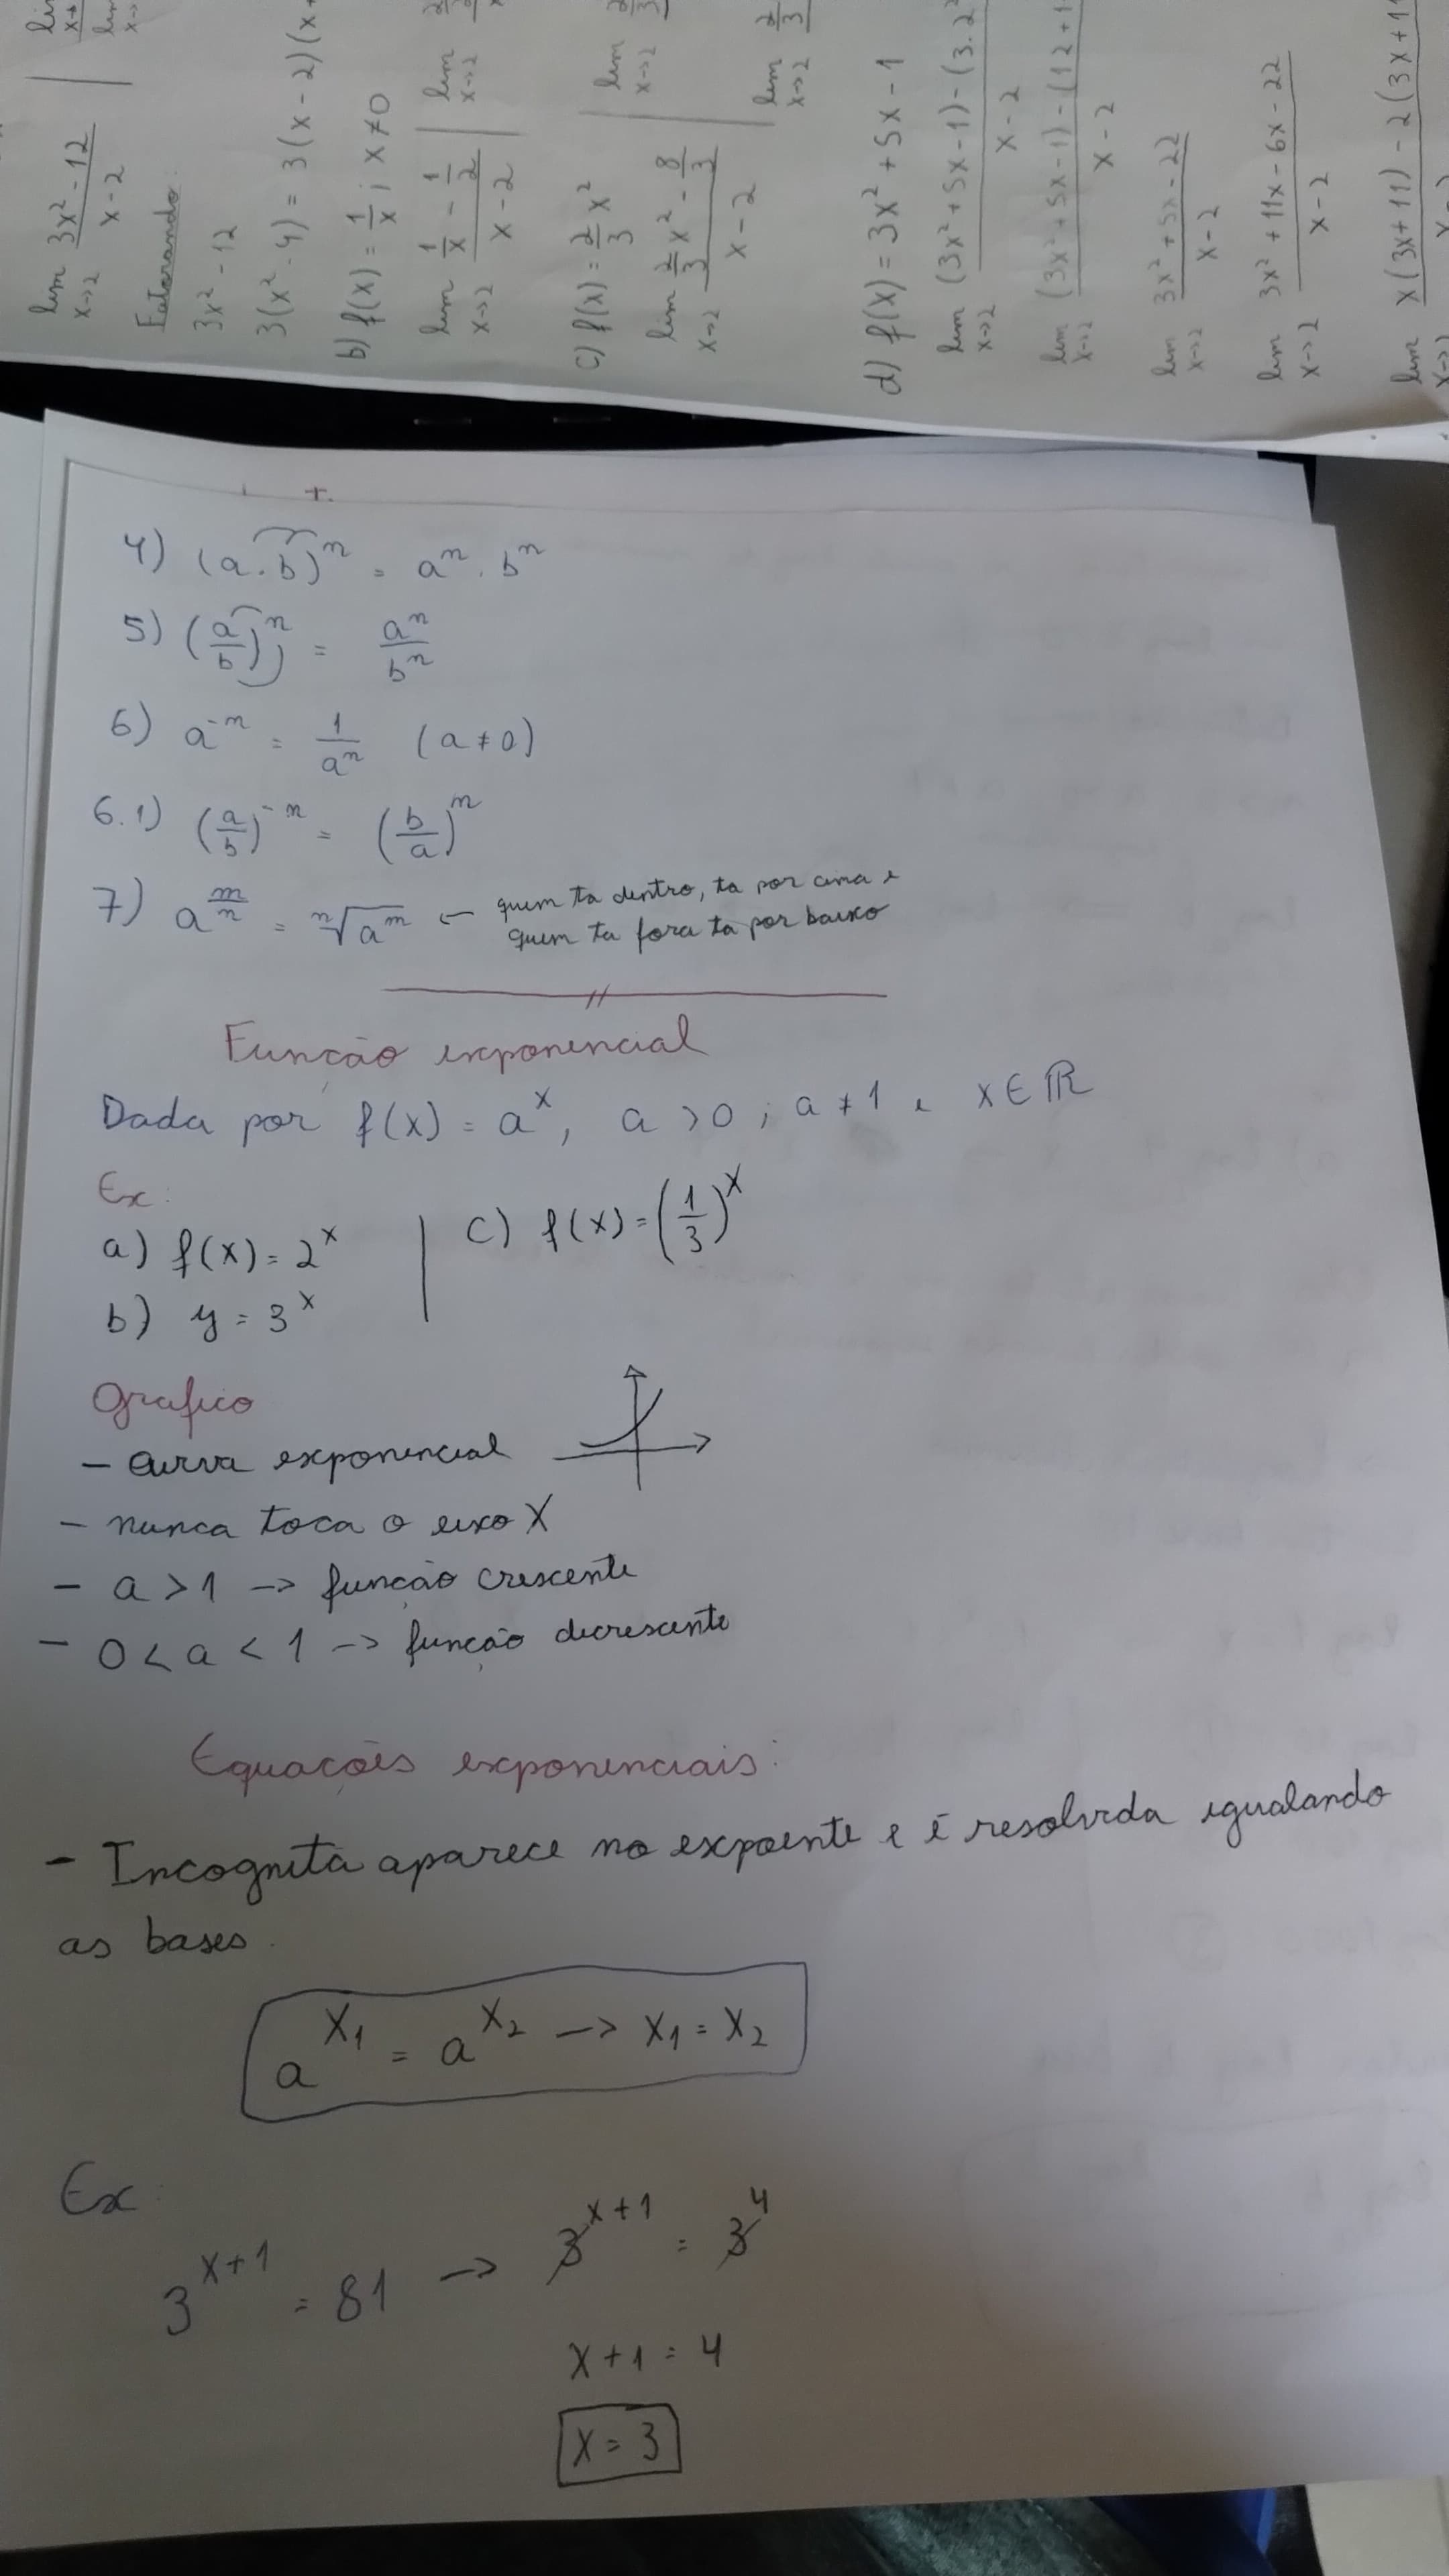 lim 3x² - 12 / x - 2
x→2
Fatorando:
3x² - 12
3(x² - 4) = 3(x - 2)(x +
b) f(x) = 1/x ; x ≠ 0
lim 1/x - 1/2 / x - 2 | lim
x→2 x→2
c) f(x) = 2/3 x² | lim
x→2
lim 2/3 x² - 8/3 / x - 2 | lim 2/3
x→2 x→2
d) f(x) = 3x² + 5x - 1
lim (3x² + 5x - 1) - (3.2² / x - 2
x→2
lim (3x² + 5x - 1) - (12 + 1 / x - 2
x→2
lim 3x² + 5x - 22 / x - 2
x→2
lim 3x² + 11x - 6x - 22 / x - 2
x→2
lim x(3x + 11) - 2(3x + 11
x→2
4) (a.b)ⁿ = aⁿ . bⁿ
5) (a/b)ⁿ = aⁿ/bⁿ
6) a⁻ⁿ = 1/aⁿ (a ≠ 0)
6.1) (a/b)⁻ⁿ = (b/a)ⁿ
7) a^(m/n) = ⁿ√aᵐ ← quem ta dentro, ta por cima e
quem ta fora ta por baixo
Função exponencial
Dada por f(x) = aˣ, a > 0 ; a ≠ 1 e x ∈ ℝ
Ex:
a) f(x) = 2ˣ | c) f(x) = (1/3)ˣ
b) y = 3ˣ
Grafico
- curva exponencial
- nunca toca o eixo X
- a > 1 -> função crescente
- 0 < a < 1 -> função decrescente
Equações exponenciais:
- Incognita aparece no expoente e é resolvida igualando
as bases.
a^X₁ = a^X₂ -> X₁ = X₂
Ex:
3^(x+1) = 81 -> 3^(x+1) = 3⁴
x + 1 = 4
x = 3